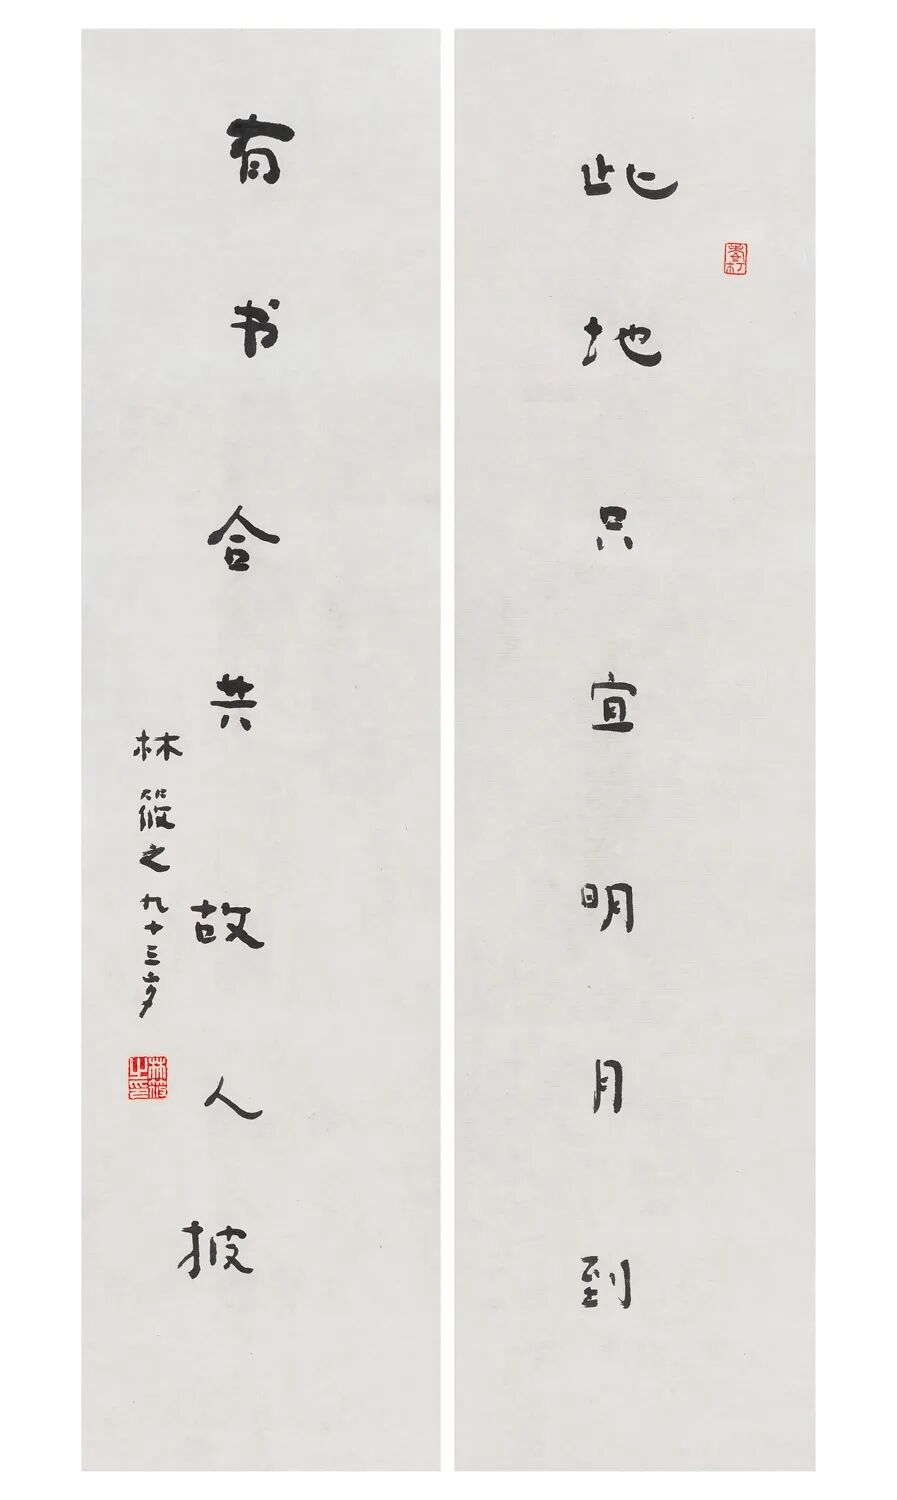 此地只宜明月到
有书合共故人披
林筱之九十三岁
林筱之印